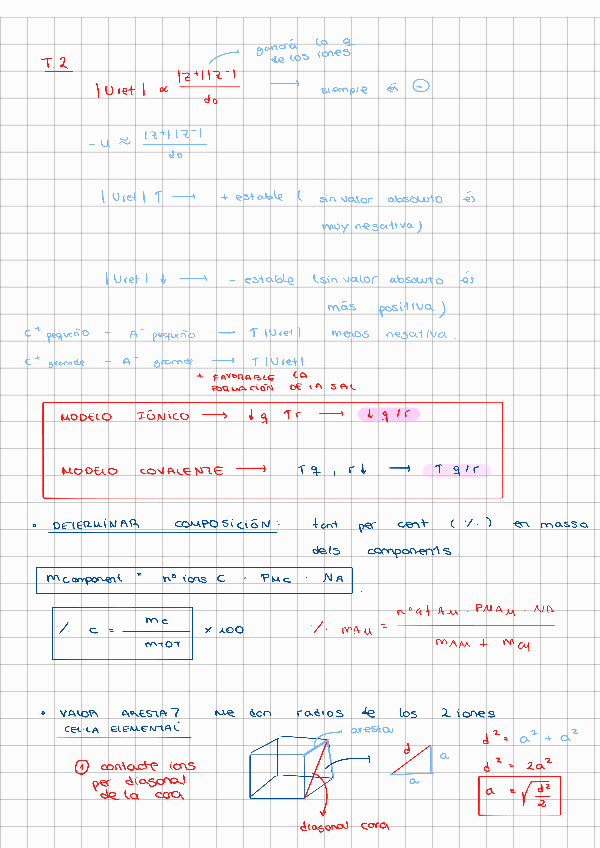 T.2
ganará la q
de los iones
|Uret| ∝ |Z+||Z-| / do → siempre és ⊖
- U ≈ |Z+||Z-| / do
|Uret| ↑ → + estable ( sin valor absoluto és
muy negativa)
|Uret| ↓ → - estable (sin valor absoluto és
más positiva)
C⁺ pequeño - A⁻ pequeño → ↑|Uret| menos negativa.
C⁺ grande - A⁻ grande → ↑|Uret|
+ FAVORABLE LA
FORMACIÓN DE LA SAL
MODELO IÓNICO → ↓q ↑r → ↓q/r
MODELO COVALENTE → ↑q , r↓ → ↑q/r
• DETERMINAR COMPOSICIÓN: tant per cent (%) en massa
dels components
mcomponent = nº ions C · PMc · NA
% C = mc / mTOT × 100
% mAu = nº at Au · PMAu · NA / mAu + mCu
• VALOR ARESTA? Me dan radios de los 2 iones
CEL·LA ELEMENTAL
aresta
① contacte ions
per diagonal
de la cara
d
a
a
diagonal cara
d² = a² + a²
d² = 2a²
a = √(d²/2)